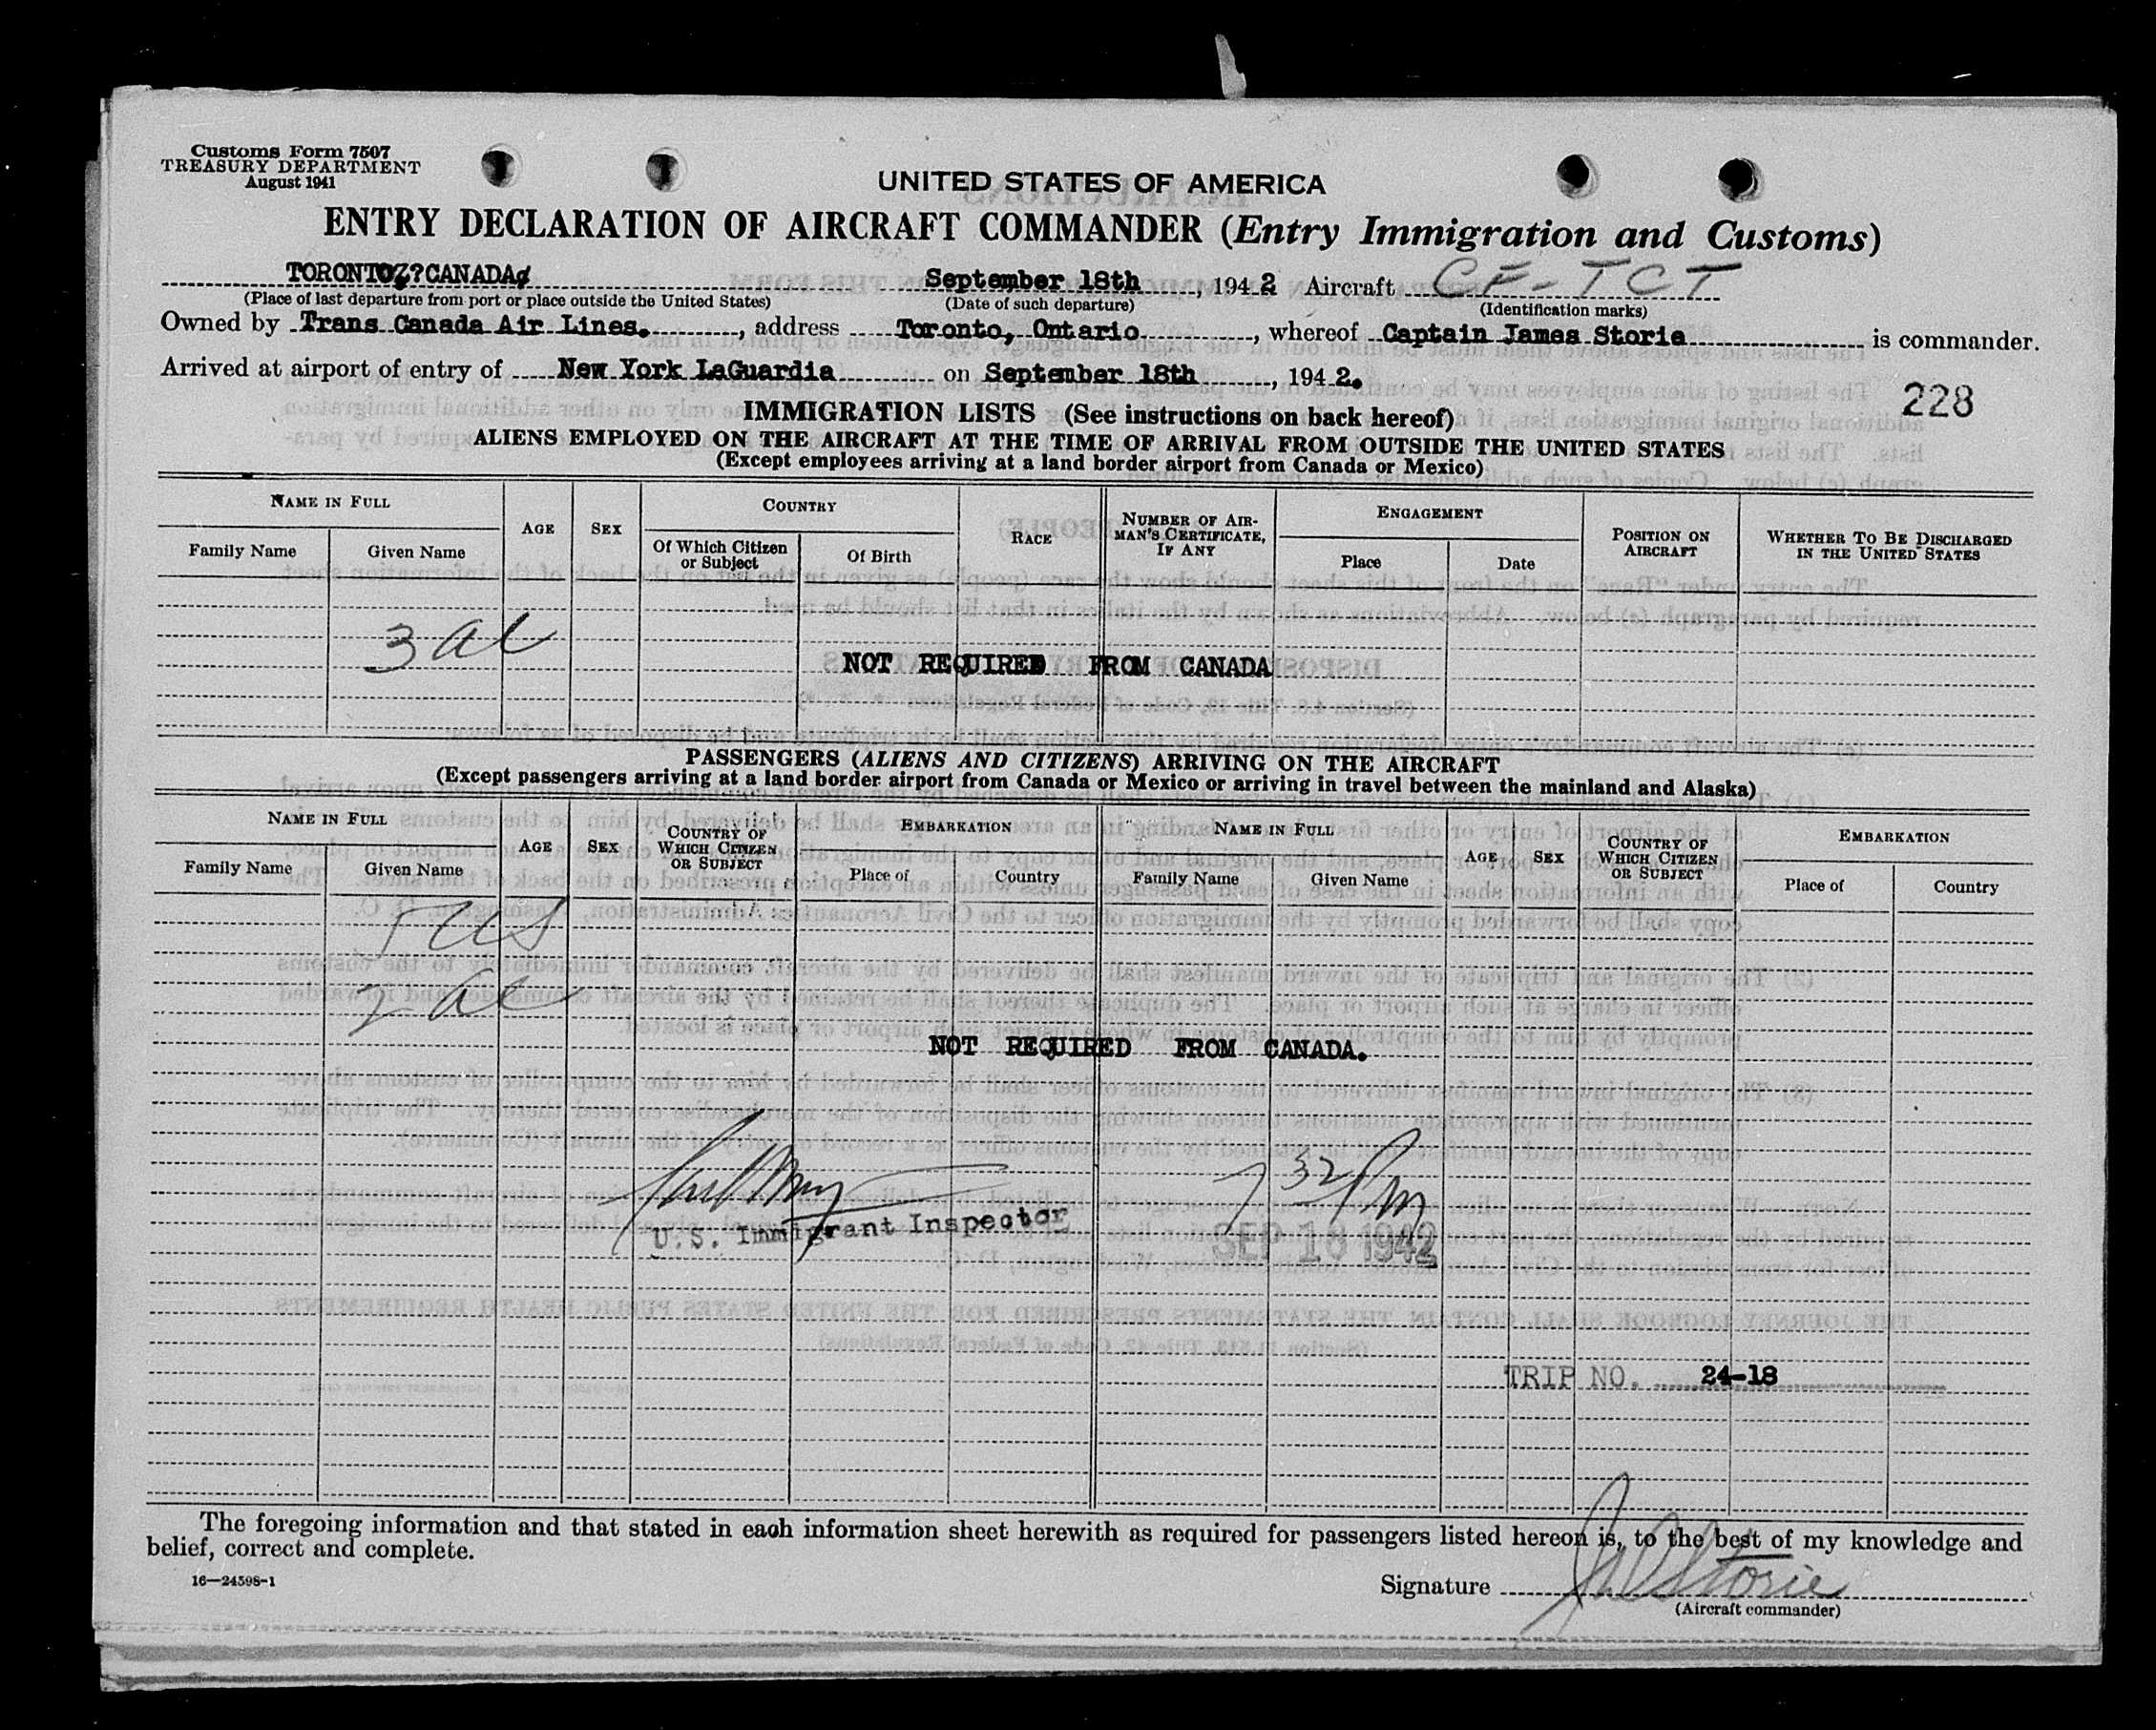 Customs Form 7507
TREASURY DEPARTMENT
August 1941
UNITED STATES OF AMERICA
ENTRY DECLARATION OF AIRCRAFT COMMANDER (Entry Immigration and Customs)
TORONTOZ?CANADA¢ September 18th, 1942 Aircraft CF-TCT
(Place of last departure from port or place outside the United States) (Date of such departure) (Identification marks)
Owned by Trans Canada Air Lines., address Toronto, Ontario, whereof Captain James Storie is commander.
Arrived at airport of entry of New York LaGuardia on September 18th, 1942.
228
IMMIGRATION LISTS (See instructions on back hereof)
ALIENS EMPLOYED ON THE AIRCRAFT AT THE TIME OF ARRIVAL FROM OUTSIDE THE UNITED STATES
(Except employees arriving at a land border airport from Canada or Mexico)
NAME IN FULL AGE SEX COUNTRY RACE NUMBER OF AIRMAN'S CERTIFICATE, IF ANY ENGAGEMENT POSITION ON AIRCRAFT WHETHER TO BE DISCHARGED IN THE UNITED STATES
Family Name Given Name Of Which Citizen or Subject Of Birth Place Date
3 al
NOT REQUIRED FROM CANADA
PASSENGERS (ALIENS AND CITIZENS) ARRIVING ON THE AIRCRAFT
(Except passengers arriving at a land border airport from Canada or Mexico or arriving in travel between the mainland and Alaska)
NAME IN FULL AGE SEX COUNTRY OF WHICH CITIZEN OR SUBJECT EMBARKATION NAME IN FULL AGE SEX COUNTRY OF WHICH CITIZEN OR SUBJECT EMBARKATION
Family Name Given Name Place of Country Family Name Given Name Place of Country
US
al
NOT REQUIRED FROM CANADA.
7 32 Pm
U.S. Immigrant Inspector
SEP 18 1942
TRIP NO. 24-18
The foregoing information and that stated in each information sheet herewith as required for passengers listed hereon is, to the best of my knowledge and
belief, correct and complete.
16—24598-1
Signature JW Storie
(Aircraft commander)